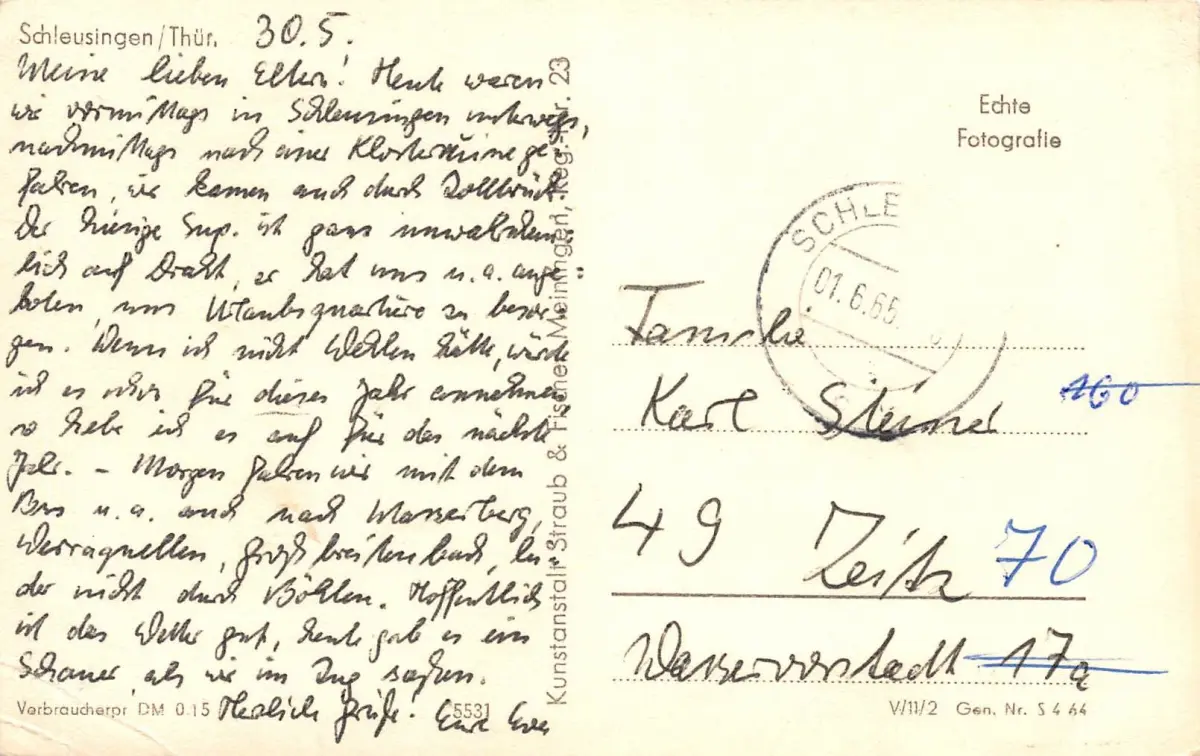 Schleusingen/Thür. 30.5.
Meine lieben Eltern! Heute waren
wir vormittags in Schleusingen unterwegs,
nachmittags nach einer Klosterruine ge-
fahren, wir kamen auch durch Zollbrück.
Der hiesige Sup. ist ganz unwahrschein-
lich auf Draht, er hat uns u. a. ange-
boten, uns Urlaubsquartiere zu besor-
gen. Wenn ich nicht Wehlen hätte, würde
ich es schon für dieses Jahr annehmen
so hebe ich es auf für das nächste
Jahr. - Morgen fahren wir mit dem
Bus u. a. auch nach Masserberg,
Werraquellen, Großbreitenbach, lei-
der nicht durch Böhlen. Hoffentlich
ist das Wetter gut, heute gab es ein
Schauer, als wir im Zug saßen.
Herzliche Grüße! Eure Eva
Verbraucherpr DM 0.15
5531
Kunstanstalt Straub & Fischer, Meiningen, Reg.-Nr. 23
Echte
Fotografie
SCHLE
01.6.65
Familie
Karl Steiner
160
49 Zeitz 70
Wasservorstadt 17a
V/11/2 Gen. Nr. S 4 64